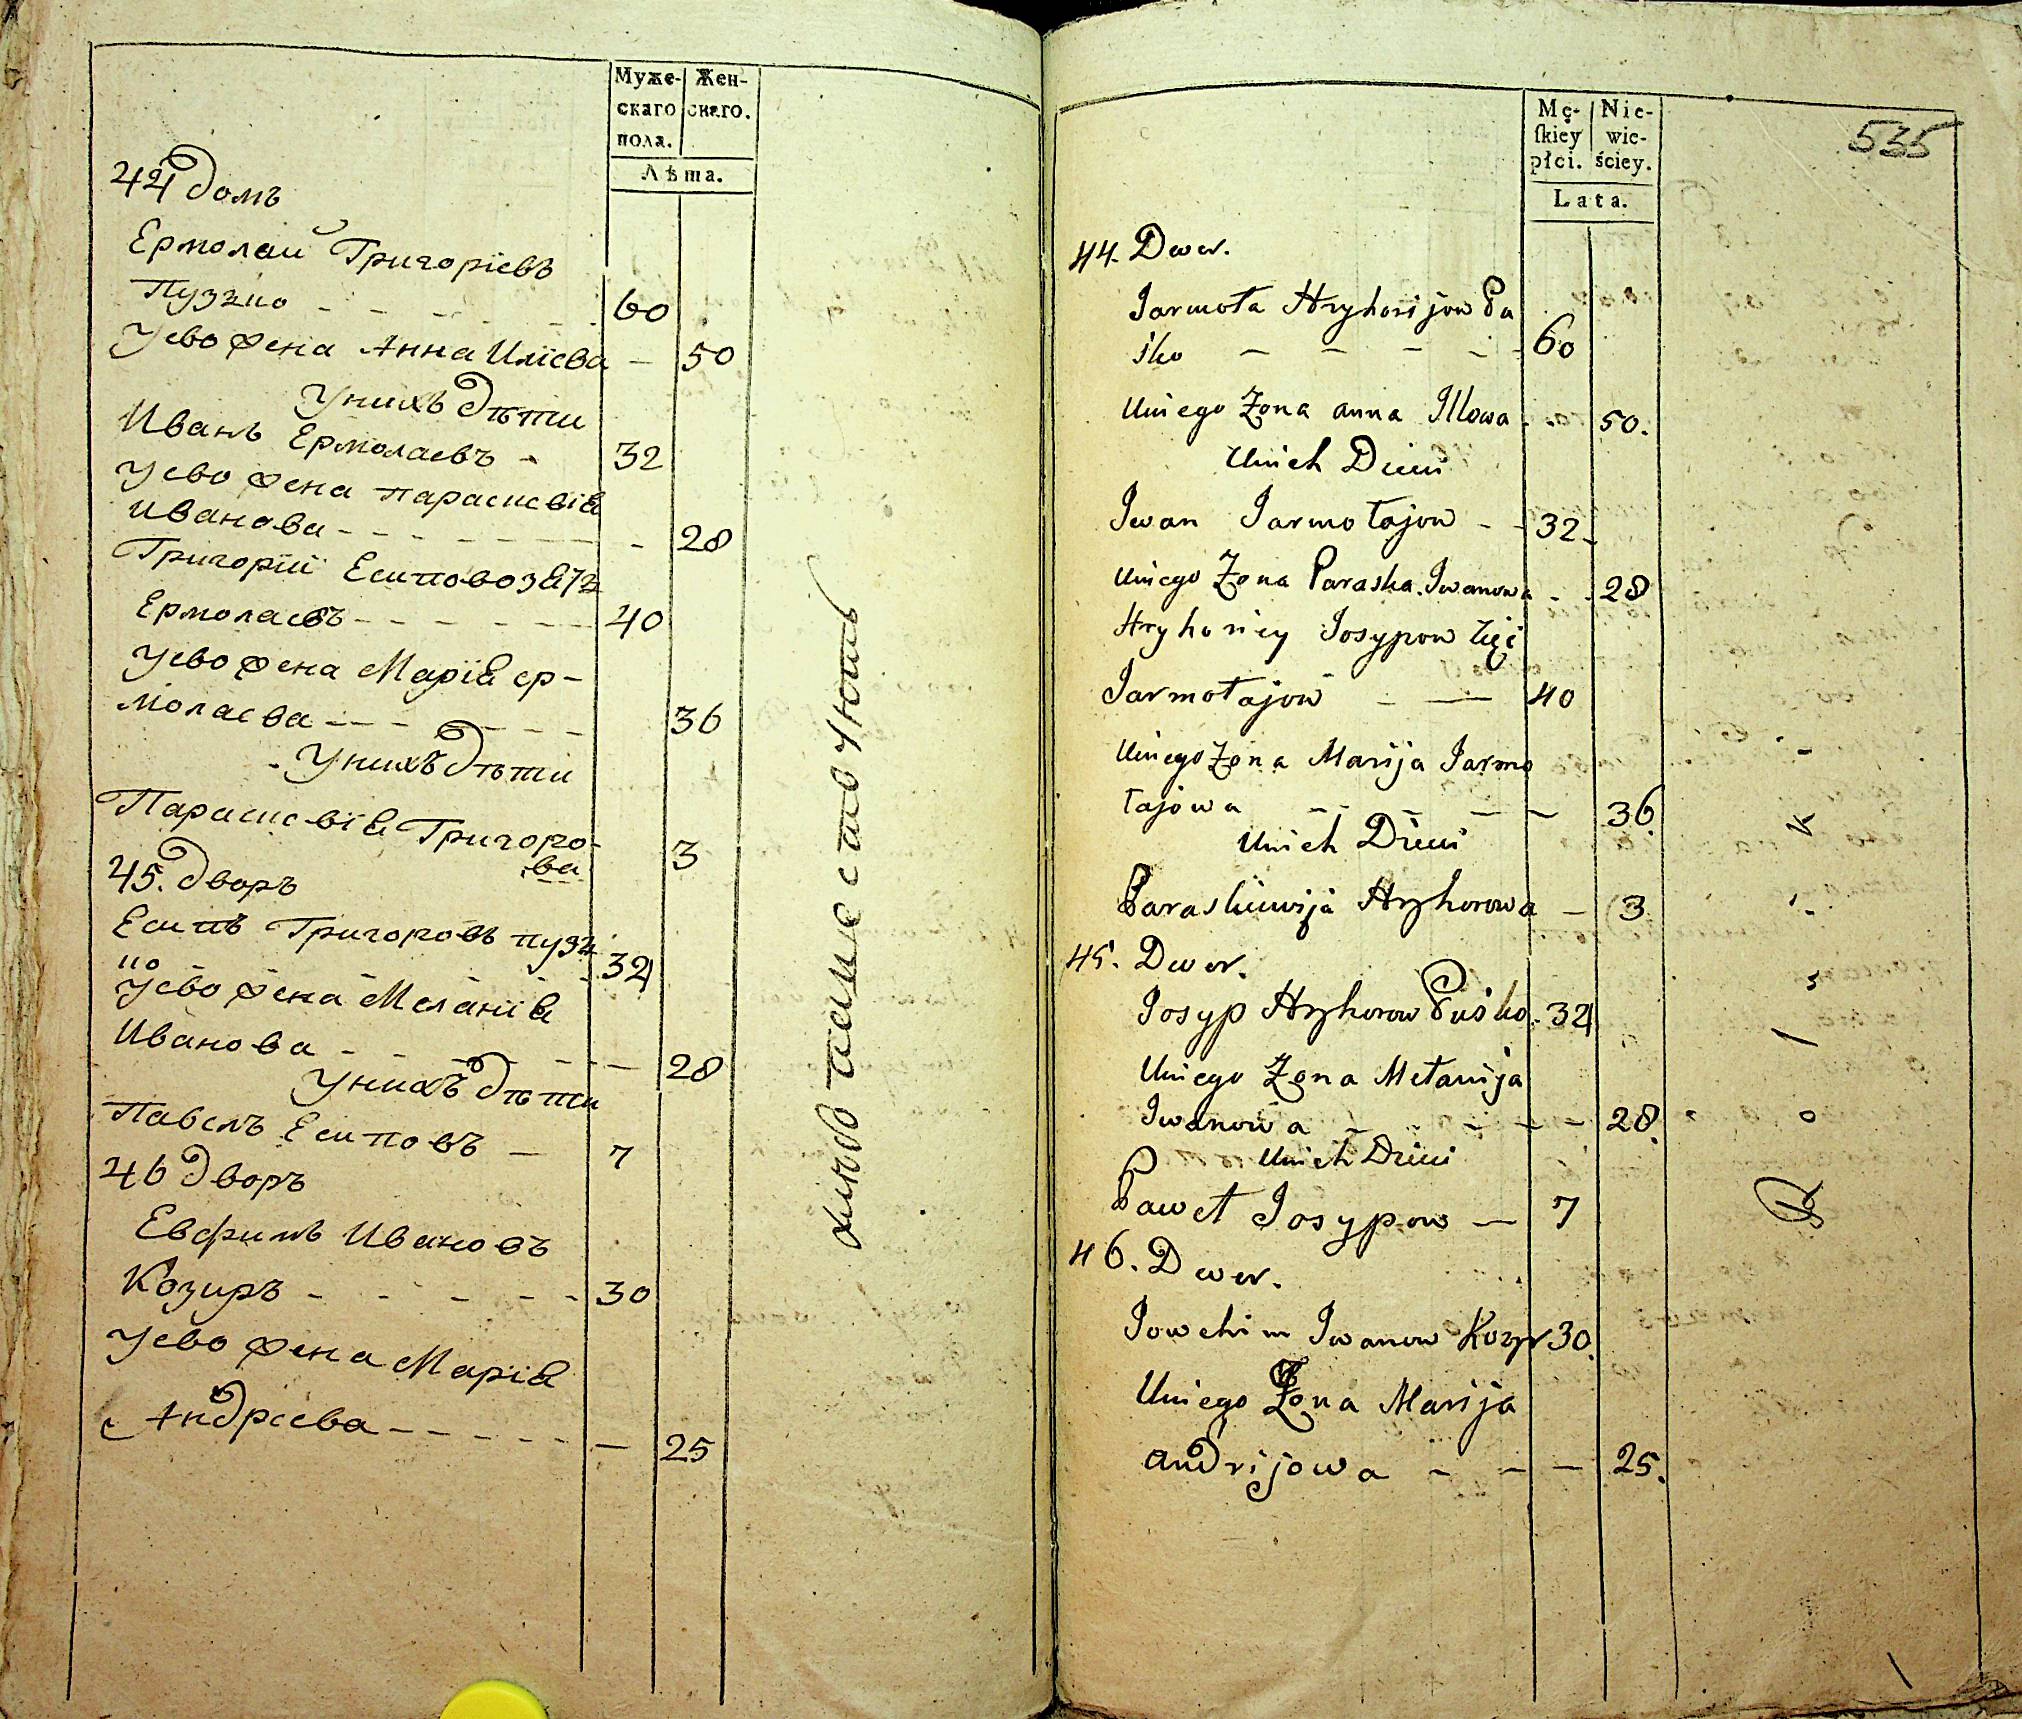 Муже-
скаго
пола.
Жен-
скаго.
Лѣта.
44 домъ
Ермолай Григоріевъ
Пузько 60
У ево жена Анна Иліева 50
У нихъ дѣти
Иванъ Ермолаевъ 32
У ево жена Параскевія
Иванова 28
Григорій Есипово зять
Ермолаевъ 40
У ево жена Марія Ер-
молаева 36
У нихъ дѣти
Параскевія Григоро-
ва 3
45. дворъ
Есипъ Григоровъ Пузь
ко 32
У ево жена Меланія
Иванова 28
У нихъ дѣти
Павелъ Есиповъ 7
46 дворъ
Евфимъ Ивановъ
Козиръ 30
У ево жена Марія
Андреева 25
Mę-
skiey
płci.
Nie-
wie-
ściey.
Lata.
535
44. Dwor.
Jarmoła Hryhorijow Pu
śko 60
Uniego Żona anna Illowa 50.
Unich Dzieci
Iwan Jarmołajow 32
Uniego Żona Paraska Iwanowa 28
Hryhoriey Josypow Zięć
Jarmołajow 40
Uniego Żona Marija Jarmo
łajowa 36
Unich Dzieci
Paraskiewija Hryhorowa 3
45. Dwor.
Josyp Hryhorow Puśko 32
Uniego Żona Mełanija
Iwanowa 28.
Unich Dzieci
Paweł Josypow 7
46. Dwor.
Jowchim Iwanow Kozyr 30.
Uniego Żona Marija
andrijowa 25.